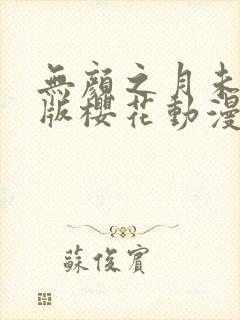 無顏之月未
版櫻花動漫
蘇俊賓